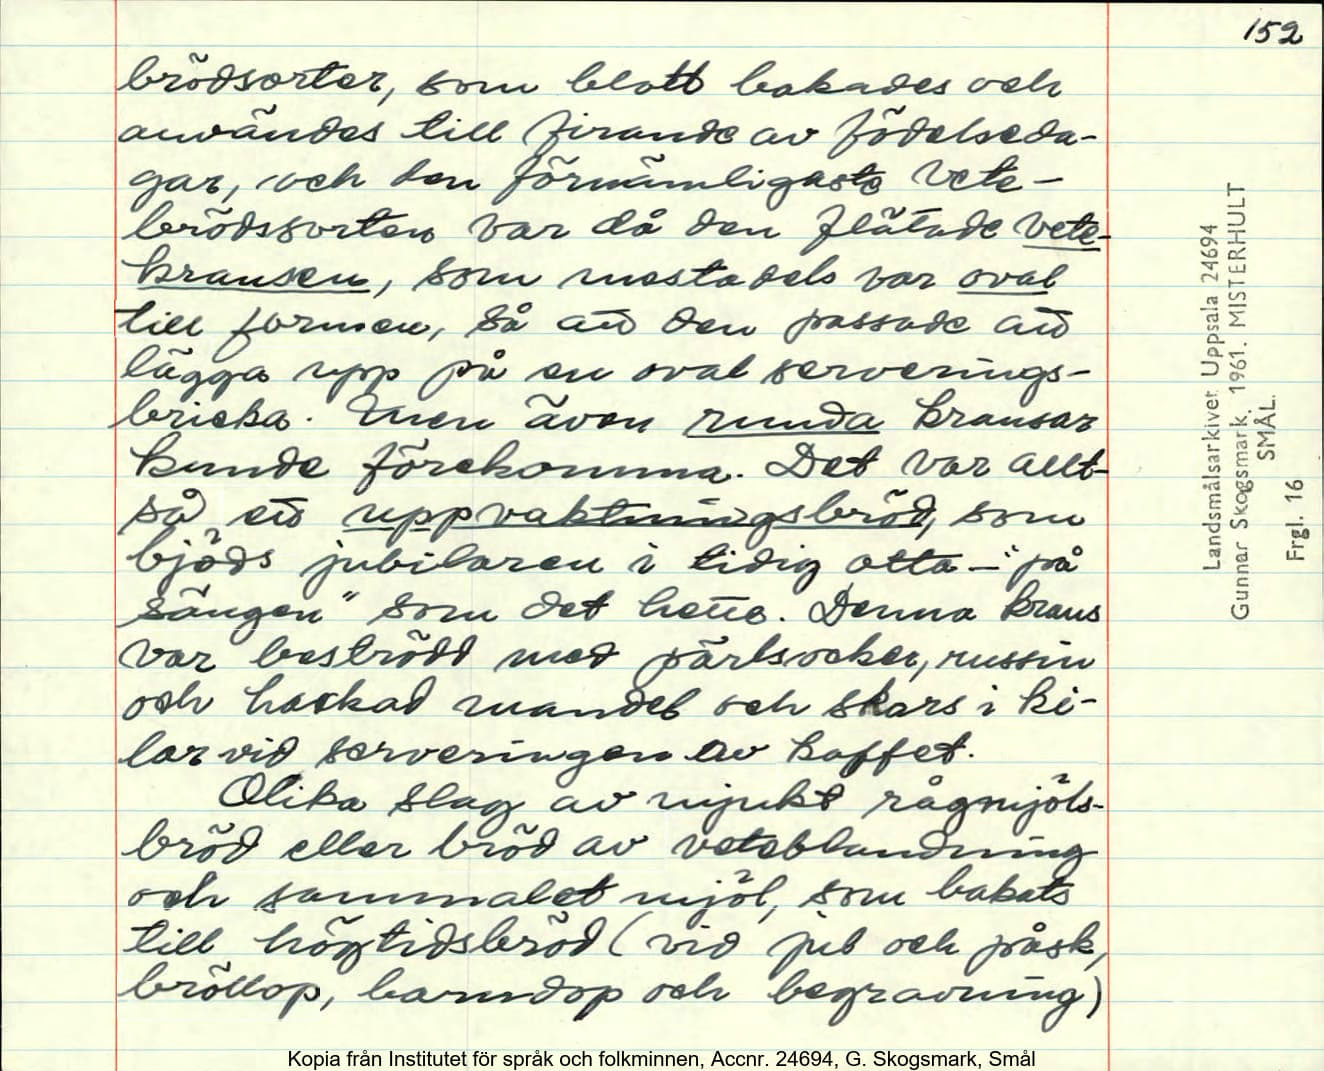 152
brödsorter, som blott bakades och
användes till firande av födelseda-
gar, och den förnämligaste vete-
brödssorten var då den flätade vete-
kransen, som mestadels var oval
till formen, så att den passade att
lägga upp på en oval serverings-
bricka. Men även runda kransar
kunde förekomma. Det var allt-
så ett uppvaktningsbröd, som
bjöds jubilaren i tidig otta – "på
sängen" som det hette. Denna krans
var beströdd med pärlsocker, russin
och hackad mandel och skars i ki-
lar vid serveringen av kaffet.
Olika slag av mjukt rågmjöls-
bröd eller bröd av veteblandning
och sammalet mjöl, som bakats
till högtidsbröd (vid jul och påsk,
bröllop, barndop och begravning)
Landsmålsarkivet Uppsala 24694
Gunnar Skogsmark. 1961. MISTERHULT
SMÅL.
Frgl. 16
Kopia från Institutet för språk och folkminnen, Accnr. 24694, G. Skogsmark, Smål